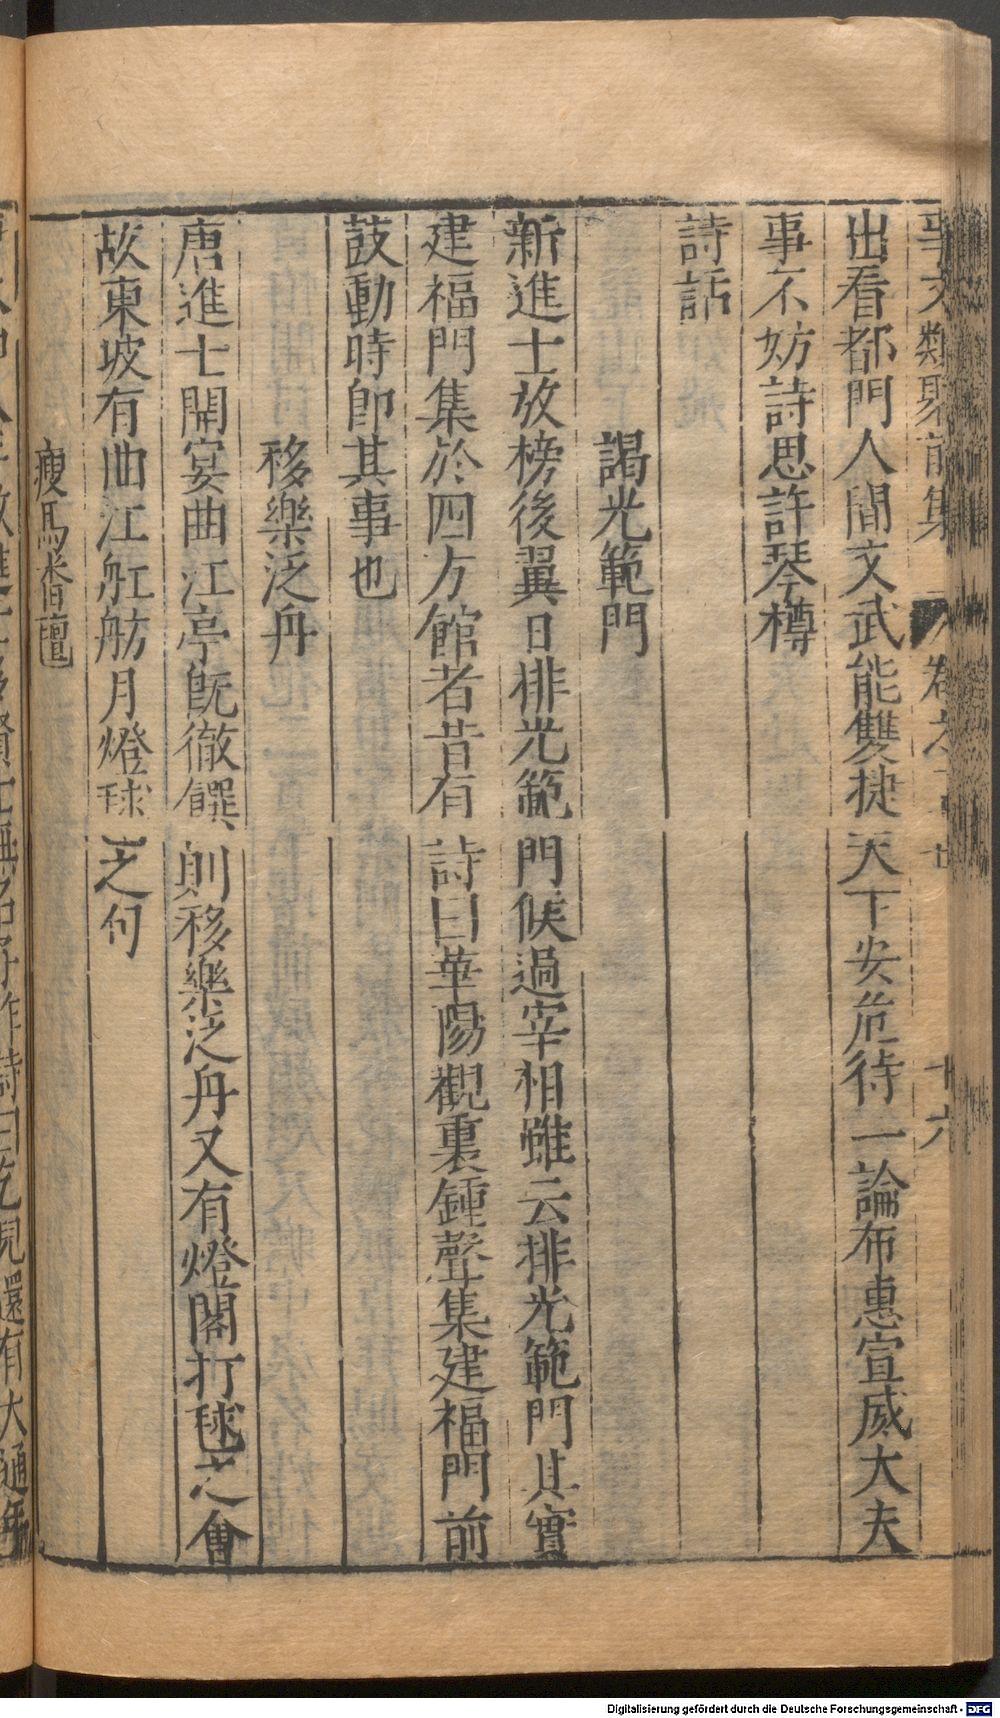 事文類聚前集 卷之二十七 十六
出看都門人間文武能雙捷天下安危待一論布惠宣威大夫
事不妨詩思許琴樽
詩話
謁光範門
新進士放榜後翼日排光範門候過宰相雖云排光範門其實
建福門集於四方館者昔有詩曰華陽觀裏鍾聲集建福門前
鼓動時卽其事也
移樂泛舟
唐進士開宴曲江亭旣徹饌則移樂泛舟又有燈閣打毬之會
故東坡有曲江舡舫月燈毬之句
瘦馬
兒還有大通年
Digitalisierung gefördert durch die Deutsche Forschungsgemeinschaft - DFG